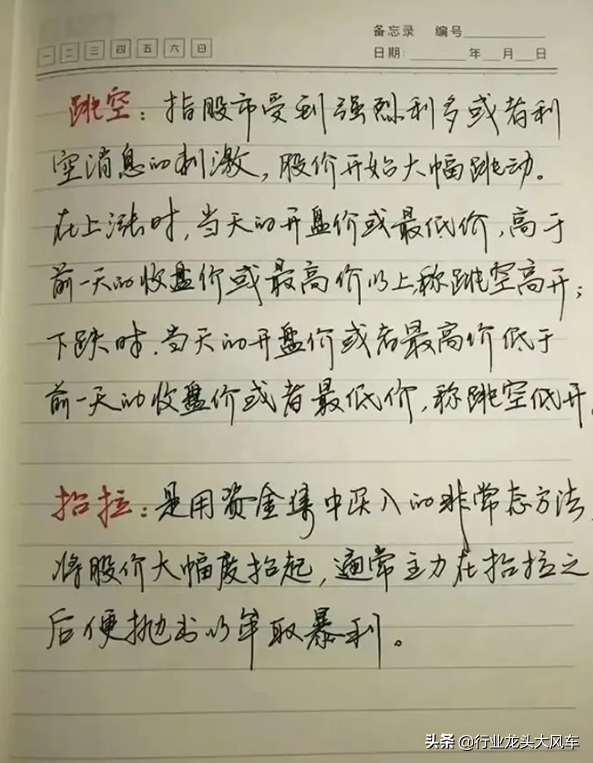 备忘录 编号
一 二 三 四 五 六 日
日期: 年 月 日
跳空：指股市受到强烈利多或者利
空消息的刺激，股价开始大幅跳动。
在上涨时，当天的开盘价或最低价，高于
前一天的收盘价或最高价以上，称跳空高开；
下跌时，当天的开盘价或者最高价低于
前一天的收盘价或者最低价，称跳空低开。
抬拉：是用资金集中买入的非常态方法，
将股价大幅度抬起，通常主力在抬拉之
后便抛出以牟取暴利。
头条 @行业龙头大风车